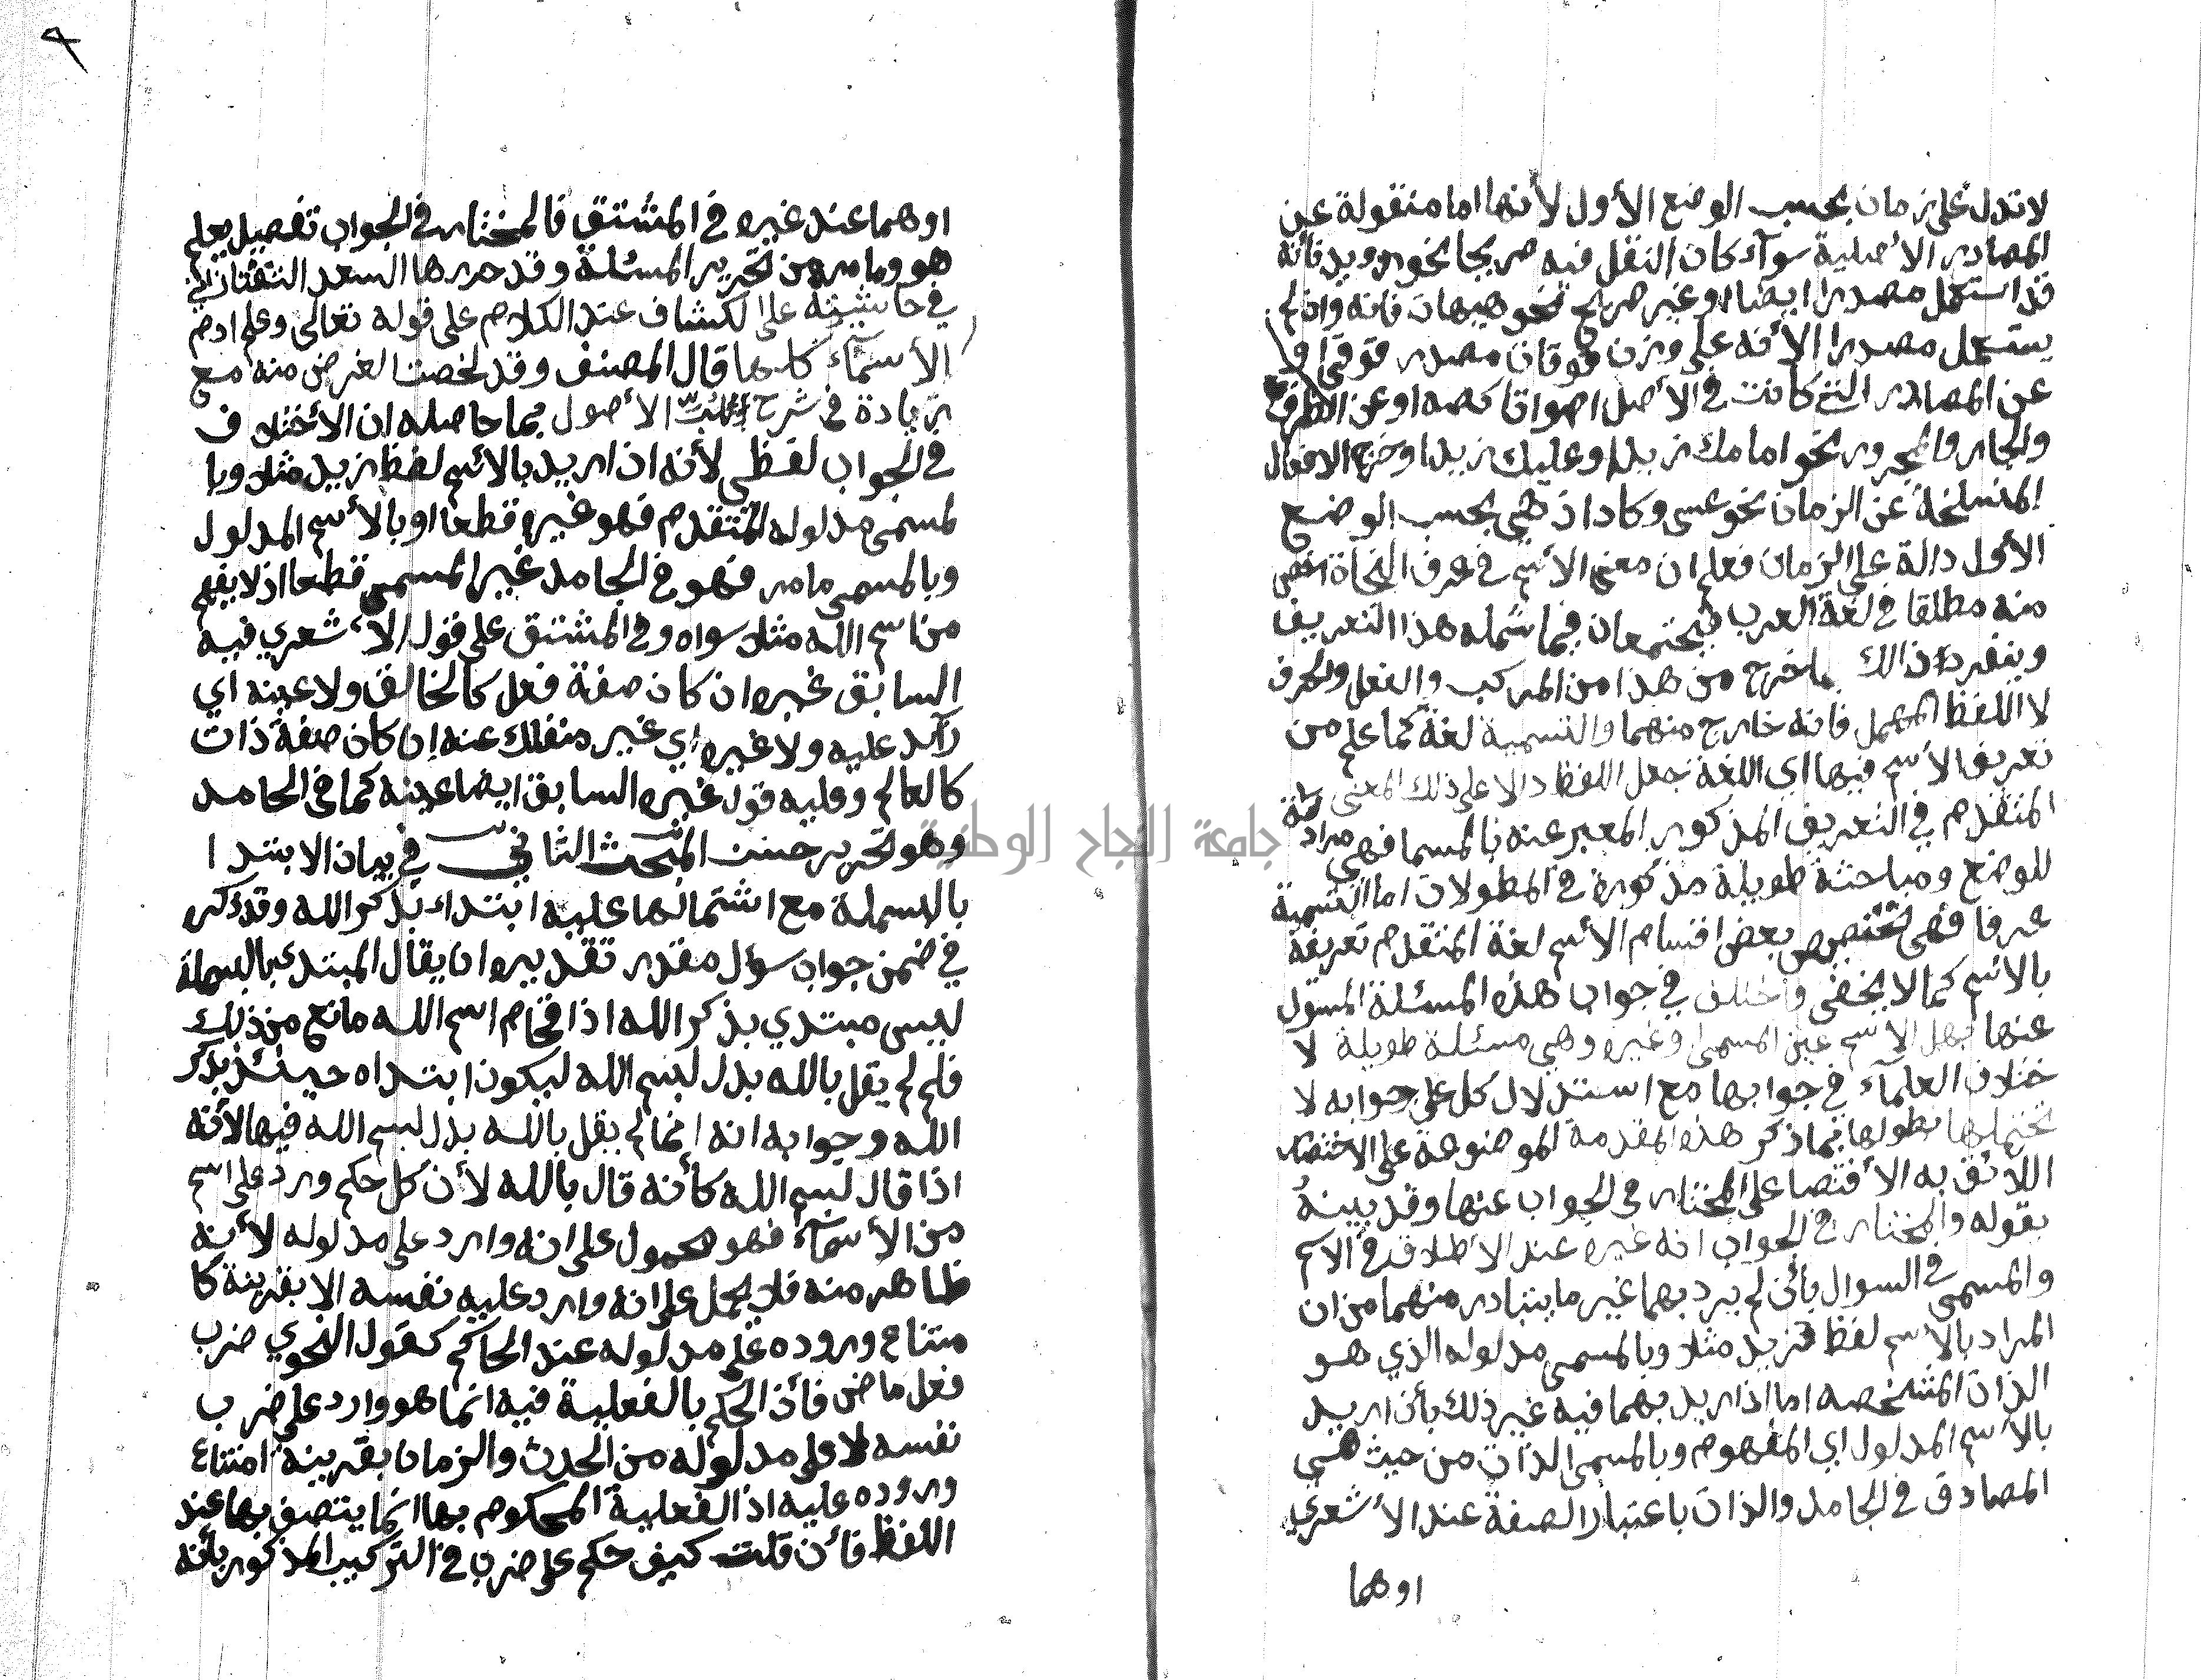 لا تدل على زمان بحسب الوضع الأول لأنها اما منقولة عن
المصادر الأصلية سوآء كان النقل فيه صريحا نحو رويد فانه
قد استعمل مصدرا ايضا او غير صريح نحو هيهات فانه وان لم
يستعمل مصدرا الا انه على وزن قوقات مصدر قوقى او
عن المصادر التي كانت في الأصل اصواتا كصه او عن الظرف
والجار والمجرور نحو امامك زيدا وعليك زيدا وخرج الافعال
المنسلخة عن الزمان نحو عسى وكاد اذ هي بحسب الوضع
الأول دالة على الزمان فعلم ان معنى الأسم في عرف النحاة اخص
منه مطلقا في لغة العرب فيجتمعان فيما شمله هذا التعريف
وينفرد ذالك بما خرج من هذا من المركب والفعل والحرف
لا اللفظ المهمل فانه خارج منهما والتسمية لغة كما علم من
تعريف الأسم فيها اي اللغة جعل اللفظ دالا على ذلك المعنى
المتقدم في التعريف المذكور المعبر عنه بالمسما فهي مرادفة
للوضع ومباحثة طويلة مذكورة في المطولات اما التسمية
عرفا فهى تختص ببعض اقسام الأسم لغة المتقدم تعريفة
بالأسم كما لا يخفى واختلف في جواب هذه المسئلة المسؤل
عنها بهل الأسم عين المسمى او غيره وهي مسئلة طويلة لا
ختلاف العلمآء في جوابها مع استدلال كل على جوابه لا
تحتملها بطولها فيما ذكر هذه المقدمة الموضوعة على الاختصار
اللائق به الأقتصا على المختار في الجواب عنها وقد بينه
بقوله والمختار في الجواب انه غيره عند الاطلاق في الاسم
والمسمى في السوال بأن لم يرد بهما غير ما يتبادر منهما من ان
المراد بالأسم لفظ كزيد مثلا وبالمسمى مدلوله الذي هو
الذات المشخصه اما اذا اريد بهما فيه غير ذلك بأن اريد
بالأسم المدلول اي المفهوم وبالمسمى الذات من حيث هي
المصادق في الجامد والذات باعتبار الصفة عند الأشعري
اوهما
٩
اوهما عند غيره في المشتق فالمختار في الجواب تفصيل يعلم
هو وما مر من تحرير المسئلة وقد حررها السعد التفتازاني
في حاشيته على الكشاف عند الكلام على قوله تعالى وعلم ادم
الأسمآء كلها قال المصنف وقد لخصت الغرض منه مع
زيادة في شرح لب الأصول بما حاصله ان الأختلاف
في الجواب لفظي لأنه ان اريد بالأسم لفظ زيد مثلا وبا
لمسمى مدلوله المتقدم فهو غيره قطعا او بالأسم المدلول
وبالمسمى ما مر فهو في الجامد غير المسمى قطعا اذ لا يفهم
من اسم الله مثلا سواه وفي المشتق على قول الأشعري فيه
السابق غيره ان كان صفة فعل كالخالق ولا عينه اي
زآئد عليه ولا غيره اي غير منفك عنه ان كان صفة ذات
كالعالم وعليه قول غيره السابق ايضا عينه كما في الجامد
وهو تحرير حسن المبحث الثاني في بيان الابتدا
بالبسملة مع اشتمالها عليه ابتداء بذكر الله وقد ذكره
في ضمن جواب سؤل مقدر تقديره ان يقال المبتدئ بالبسملة
ليس مبتدي بذكر الله اذ اقحام اسم الله مانع من ذلك
فلم لم يقل بالله بدل لبسم الله ليكون ابتداه حينئذ بذكر
الله وجوابه انه انما لم يقل بالله بدل لبسم الله فيها لأنه
اذا قال لبسم الله كأنه قال بالله لأن كل حكم ورد على اسم
من الأسمآء فهو محمول على انه وارد على مدلوله لأنه
ظاهر منه فلا يحمل على انه وارد عليه نفسه الا بقرينة كا
متناع وروده على مدلوله عند الحاكم كقول النحوي ضرب
فعل ماض فأن الحكم بالفعلية فيه انما هو وارد على ضرب
نفسه لا على مدلوله من الحدث والزمان بقرينة امتناع
وروده عليه اذ الفعلية المحكوم بها انما يتصف بها عند
اللفظ فأن قلت كيف حكم على ضرب في التركيب المذكور بأنه
جامعة النجاح الوطنية